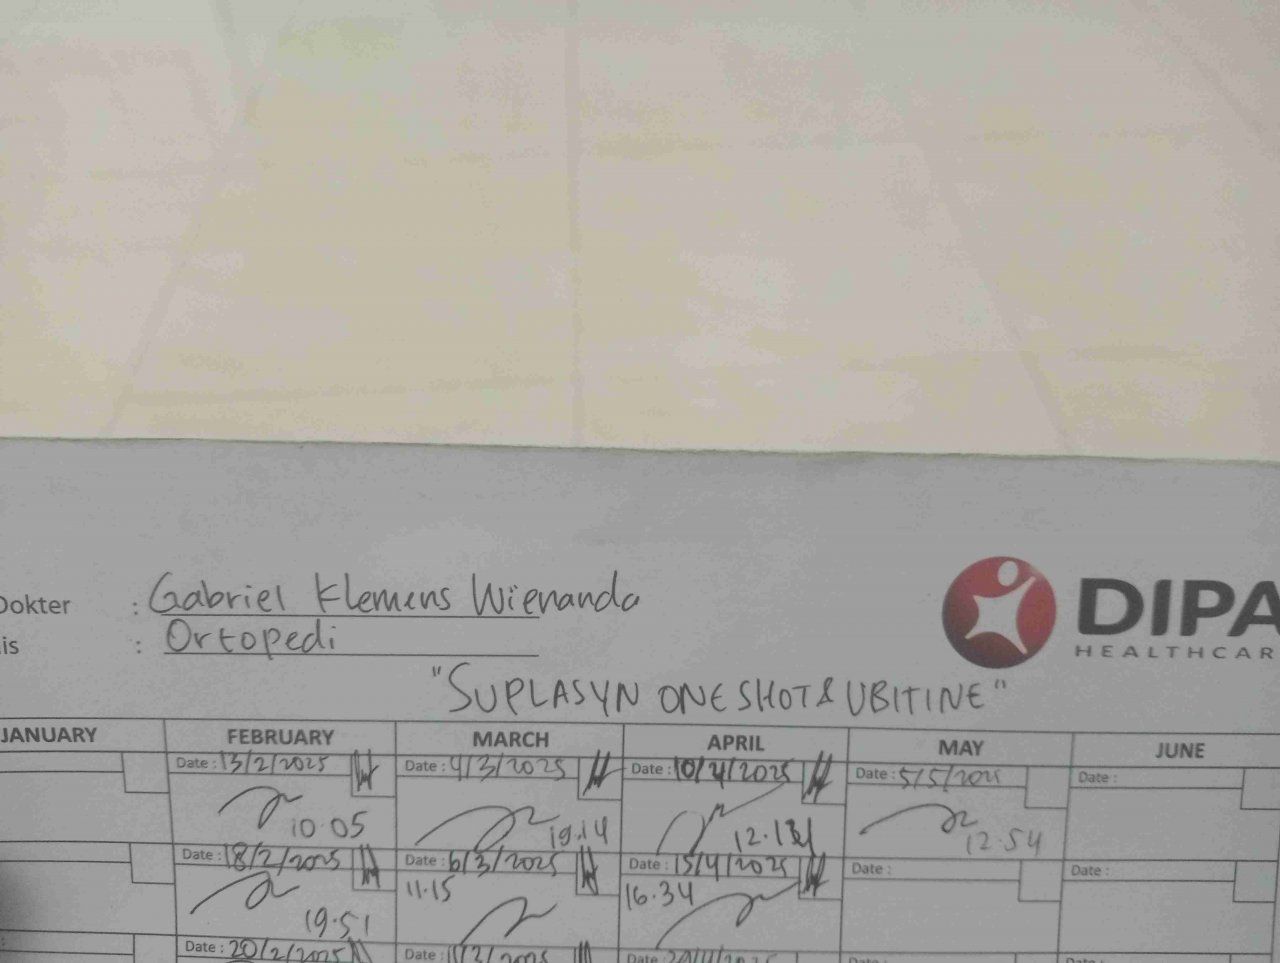 Dokter : Gabriel Klemens Wienanda
is : Ortopedi
DIPA
HEALTHCAR
"SUPLASYN ONE SHOT & UBITINE"
JANUARY FEBRUARY MARCH APRIL MAY JUNE
Date : 13/2/2025 Date : 4/3/2025 Date : 10/4/2025 Date : 5/5/2025 Date :
10.05 19.14 12.13 12.54
Date : 18/2/2025 Date : 6/3/2025 Date : 15/4/2025 Date : Date :
19.51 11.15 16.34
Date : 20/2/2025 Date : Date : Date : Date :